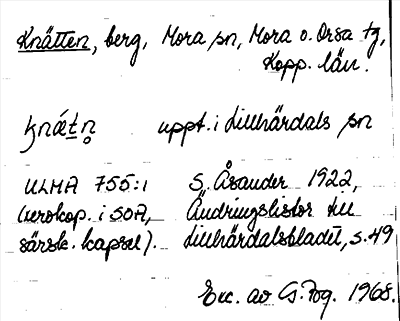 Knätten, berg, Mora sn, Mora o. Orsa tg,
Kopp. län.
uppt. i Lillhärdals sn
ULMA 755:1 S. Åsander 1922,
(xerokop. i SOA, Ändringslistor till
särsk. kapsel). Lillhärdalsbladet, s. 49
Exc. av G. 1968.